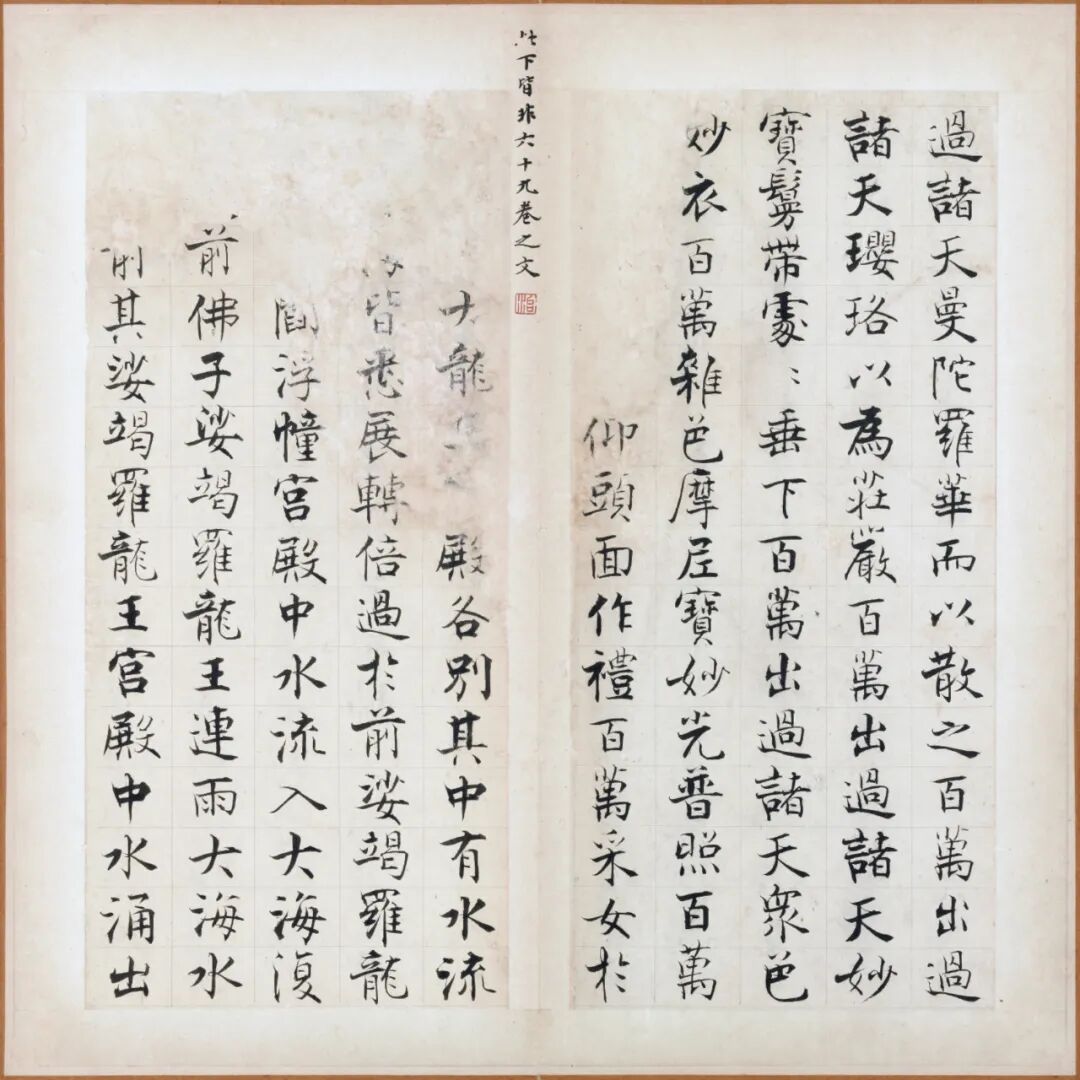 過諸天曼陀羅華而以散之百萬出過
諸天瓔珞以為莊嚴百萬出過諸天妙
寶鬘帶處〻垂下百萬出過諸天眾色
妙衣百萬雜色摩尼寶妙光普照百萬
仰頭面作禮百萬采女於
此下皆非六十九卷之文
大龍殿各別其中有水流
皆悉展轉倍過於前娑竭羅龍
閻浮幢宮殿中水流入大海復
前佛子娑竭羅龍王連雨大海水
前其娑竭羅龍王宮殿中水涌出